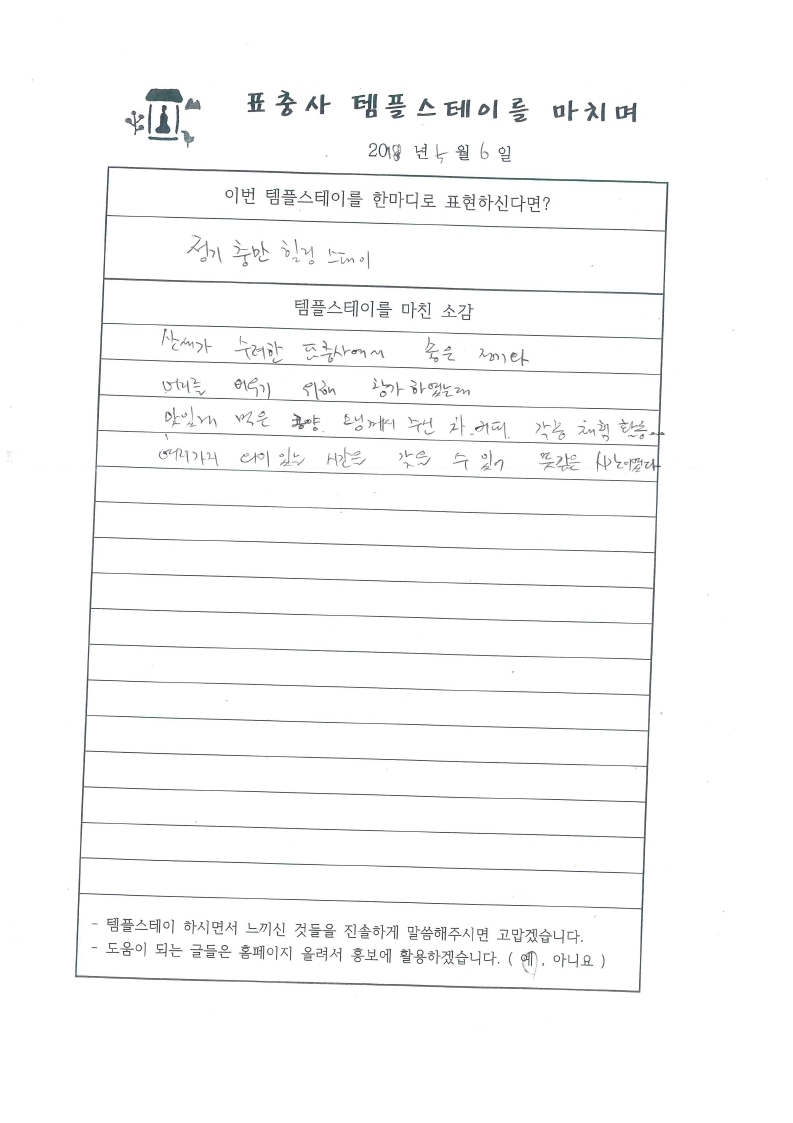 표충사 템플스테이를 마치며
2018 년 5 월 6 일
이번 템플스테이를 한마디로 표현하신다면?
정기 충만 힐링 스테이
템플스테이를 마친 소감
산세가 수려한 표충사에서 좋은 정기와
머리를 비우기 위해 참가하였는데
맛있게 먹은 공양, 스님께서 주신 차.커피. 각종 체험 활동..
여러가지 의미 있는 시간을 갖을 수 있어 뜻깊은 시간이었다
- 템플스테이 하시면서 느끼신 것들을 진솔하게 말씀해주시면 고맙겠습니다.
- 도움이 되는 글들은 홈페이지 올려서 홍보에 활용하겠습니다. ( 예 , 아니요 )